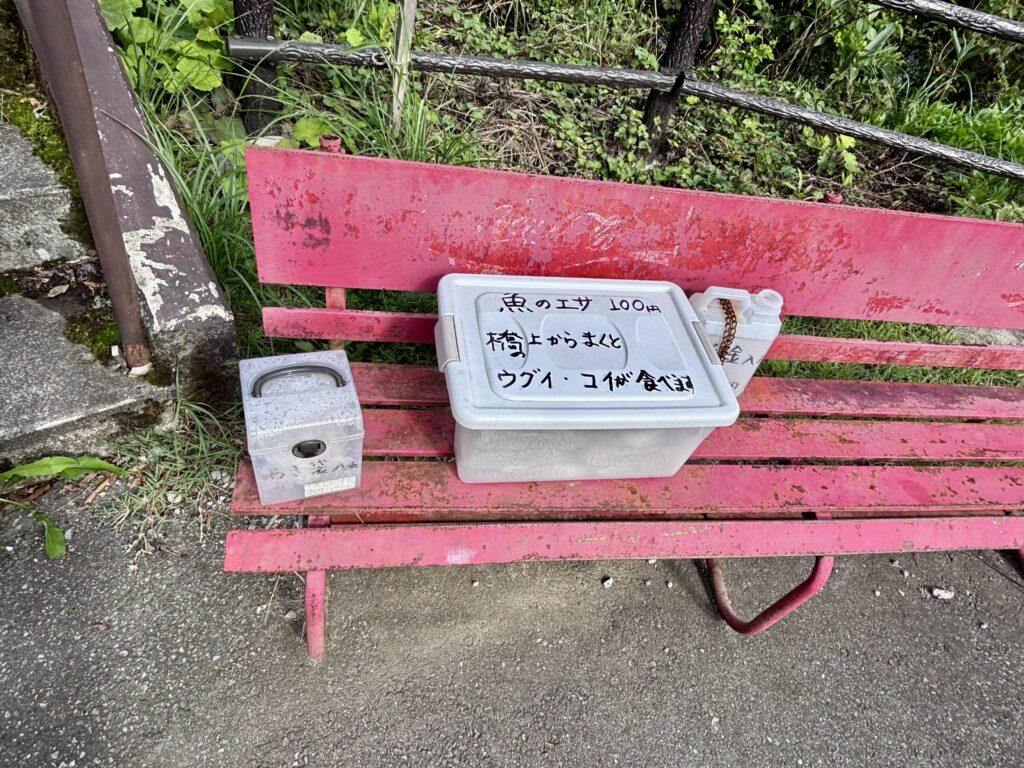 魚のエサ 100円
橋の上からまくと
ウグイ・コイが食べます
あき袋入れ
金入